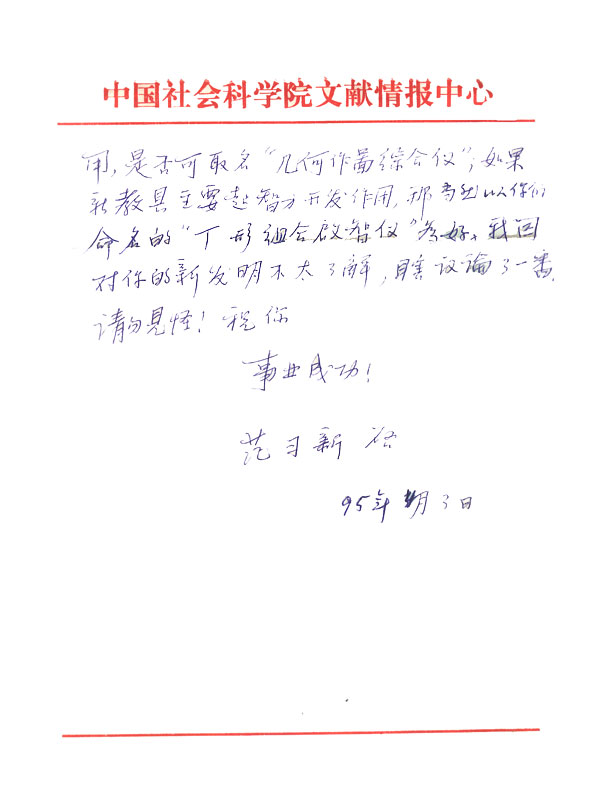 中国社会科学院文献情报中心
用,是否可取名“几何作图综合仪”;如果
新教具主要起智力开发作用,那当然以你们
命名的“丁形组合啟智仪”为好。我因
对你的新发明不太了解,瞎议论了一番,
请勿見怪!祝你
事业成功!
范习新
95年 月3日